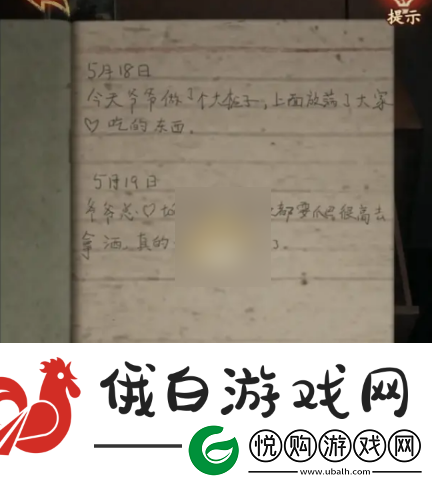 提示
5月18日
今天爷爷做了个大柜子，上面放满了大家
♡吃的东西。
5月19日
爷爷总♡ 都要爬很高去
拿酒，真的 了。
俄白游戏网
悦购游戏网
www.ubalh.com